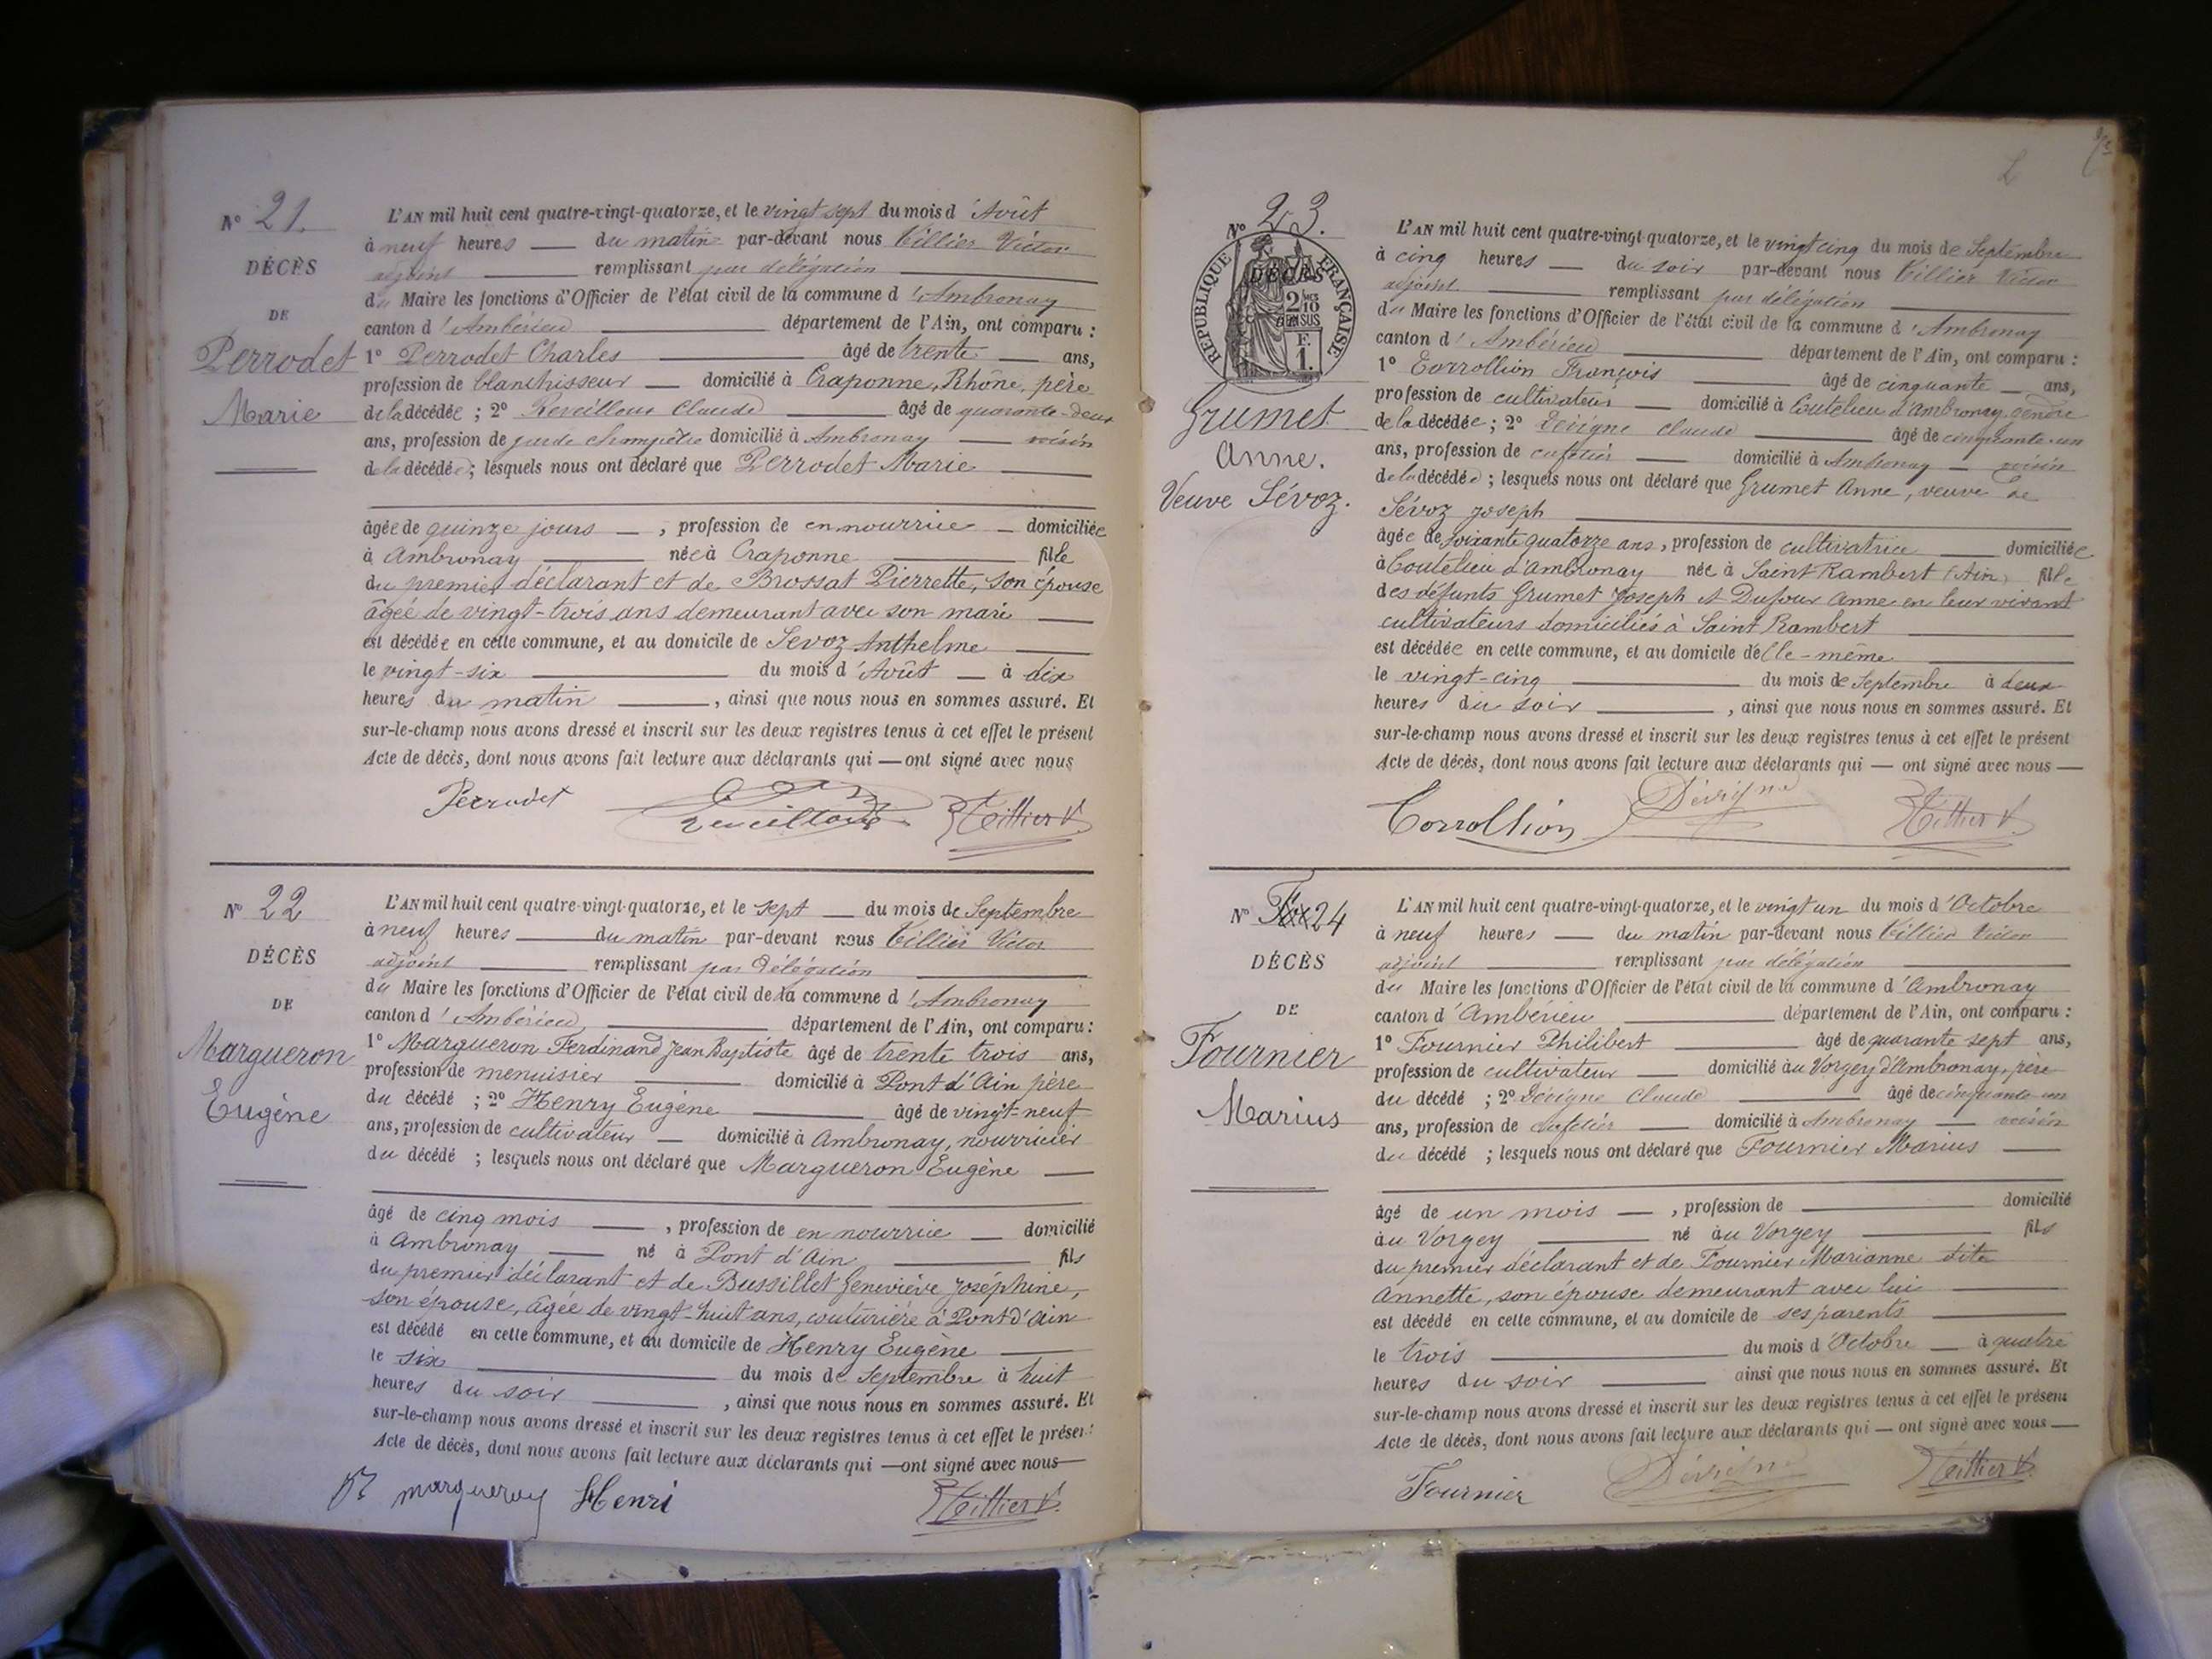 N° 21.
DÉCÈS
DE
Perrodet
Marie
L'AN mil huit cent quatre-vingt-quatorze, et le vingt sept du mois d'Août
à neuf heures du matin par-devant nous Tillier Victor
adjoint remplissant par délégation
du Maire les fonctions d'Officier de l'état civil de la commune d'Ambronay
canton d'Ambérieu département de l'Ain, ont comparu :
1° Perrodet Charles âgé de trente ans,
profession de blanchisseur domicilié à Craponne, Rhône, père
de la décédée ; 2° Reveilloux Claude âgé de quarante-deux
ans, profession de garde champêtre domicilié à Ambronay voisin
de la décédée ; lesquels nous ont déclaré que Perrodet Marie
âgée de quinze jours , profession de en nourrice domiciliée
à Ambronay née à Craponne fille
du premier déclarant et de Brossat Pierrette, son épouse
âgée de vingt-trois ans demeurant avec son mari
est décédée en cette commune, et au domicile de Sevoz Anthelme
le vingt-six du mois d'Août à dix
heures du matin , ainsi que nous nous en sommes assuré. Et
sur-le-champ nous avons dressé et inscrit sur les deux registres tenus à cet effet le présent
Acte de décès, dont nous avons fait lecture aux déclarants qui — ont signé avec nous
Perrodet Tillier V.
N° 22
DÉCÈS
DE
Margueron
Eugène
L'AN mil huit cent quatre-vingt-quatorze, et le sept du mois de Septembre
à neuf heures du matin par-devant nous Tillier Victor
adjoint remplissant par délégation
du Maire les fonctions d'Officier de l'état civil de la commune d'Ambronay
canton d'Ambérieu département de l'Ain, ont comparu :
1° Margueron Ferdinand Jean Baptiste âgé de trente trois ans,
profession de menuisier domicilié à Pont d'Ain père
du décédé ; 2° Henry Eugène âgé de vingt-neuf
ans, profession de cultivateur domicilié à Ambronay, nourricier
du décédé ; lesquels nous ont déclaré que Margueron Eugène
âgé de cinq mois , profession de en nourrice domicilié
à Ambronay né à Pont d'Ain fils
du premier déclarant et de Bussillet Geneviève Joséphine,
son épouse, âgée de vingt-huit ans, couturière à Pont d'Ain
est décédé en cette commune, et au domicile de Henry Eugène
le six du mois de Septembre à huit
heures du soir , ainsi que nous nous en sommes assuré. Et
sur-le-champ nous avons dressé et inscrit sur les deux registres tenus à cet effet le présent
Acte de décès, dont nous avons fait lecture aux déclarants qui — ont signé avec nous
margueron Henri Tillier V.
N° 23.
RÉPUBLIQUE FRANÇAISE
DÉCÈS
2/10 EN SUS
F. 1.
Grumet
Anne.
Veuve Sévoz.
L'AN mil huit cent quatre-vingt-quatorze, et le vingt cinq du mois de Septembre
à cinq heures du soir par-devant nous Tillier Victor
adjoint remplissant par délégation
du Maire les fonctions d'Officier de l'état civil de la commune d'Ambronay
canton d'Ambérieu département de l'Ain, ont comparu :
1° Corrollion François âgé de cinquante ans,
profession de cultivateur domicilié à Coutelieu d'Ambronay, gendre
de la décédée ; 2° Dévigne Claude âgé de cinquante-un
ans, profession de cafetier domicilié à Ambronay voisin
de la décédée ; lesquels nous ont déclaré que Grumet Anne, veuve de
Sévoz Joseph
âgée de soixante quatorze ans, profession de cultivatrice domiciliée
à Coutelieu d'Ambronay née à Saint Rambert (Ain) fille
des défunts Grumet Joseph et Dufour Anne en leur vivant
cultivateurs domiciliés à Saint Rambert
est décédée en cette commune, et au domicile d'elle-même
le vingt-cinq du mois de Septembre à deux
heures du soir , ainsi que nous nous en sommes assuré. Et
sur-le-champ nous avons dressé et inscrit sur les deux registres tenus à cet effet le présent
Acte de décès, dont nous avons fait lecture aux déclarants qui — ont signé avec nous —
Corrollion Dévigne Tillier V.
N° 24
DÉCÈS
DE
Fournier
Marius
L'AN mil huit cent quatre-vingt-quatorze, et le vingt un du mois d'Octobre
à neuf heures du matin par-devant nous Tillier Victor
adjoint remplissant par délégation
du Maire les fonctions d'Officier de l'état civil de la commune d'Ambronay
canton d'Ambérieu département de l'Ain, ont comparu :
1° Fournier Philibert âgé de quarante sept ans,
profession de cultivateur domicilié au Vorgey d'Ambronay, père
du décédé ; 2° Dévigne Claude âgé de cinquante-un
ans, profession de cafetier domicilié à Ambronay voisin
du décédé ; lesquels nous ont déclaré que Fournier Marius
âgé de un mois , profession de domicilié
au Vorgey né au Vorgey fils
du premier déclarant et de Fournier Marianne dite
Annette, son épouse demeurant avec lui
est décédé en cette commune, et au domicile de ses parents
le trois du mois d'Octobre à quatre
heures du soir ainsi que nous nous en sommes assuré. Et
sur-le-champ nous avons dressé et inscrit sur les deux registres tenus à cet effet le présent
Acte de décès, dont nous avons fait lecture aux déclarants qui — ont signé avec nous —
Fournier Dévigne Tillier V.